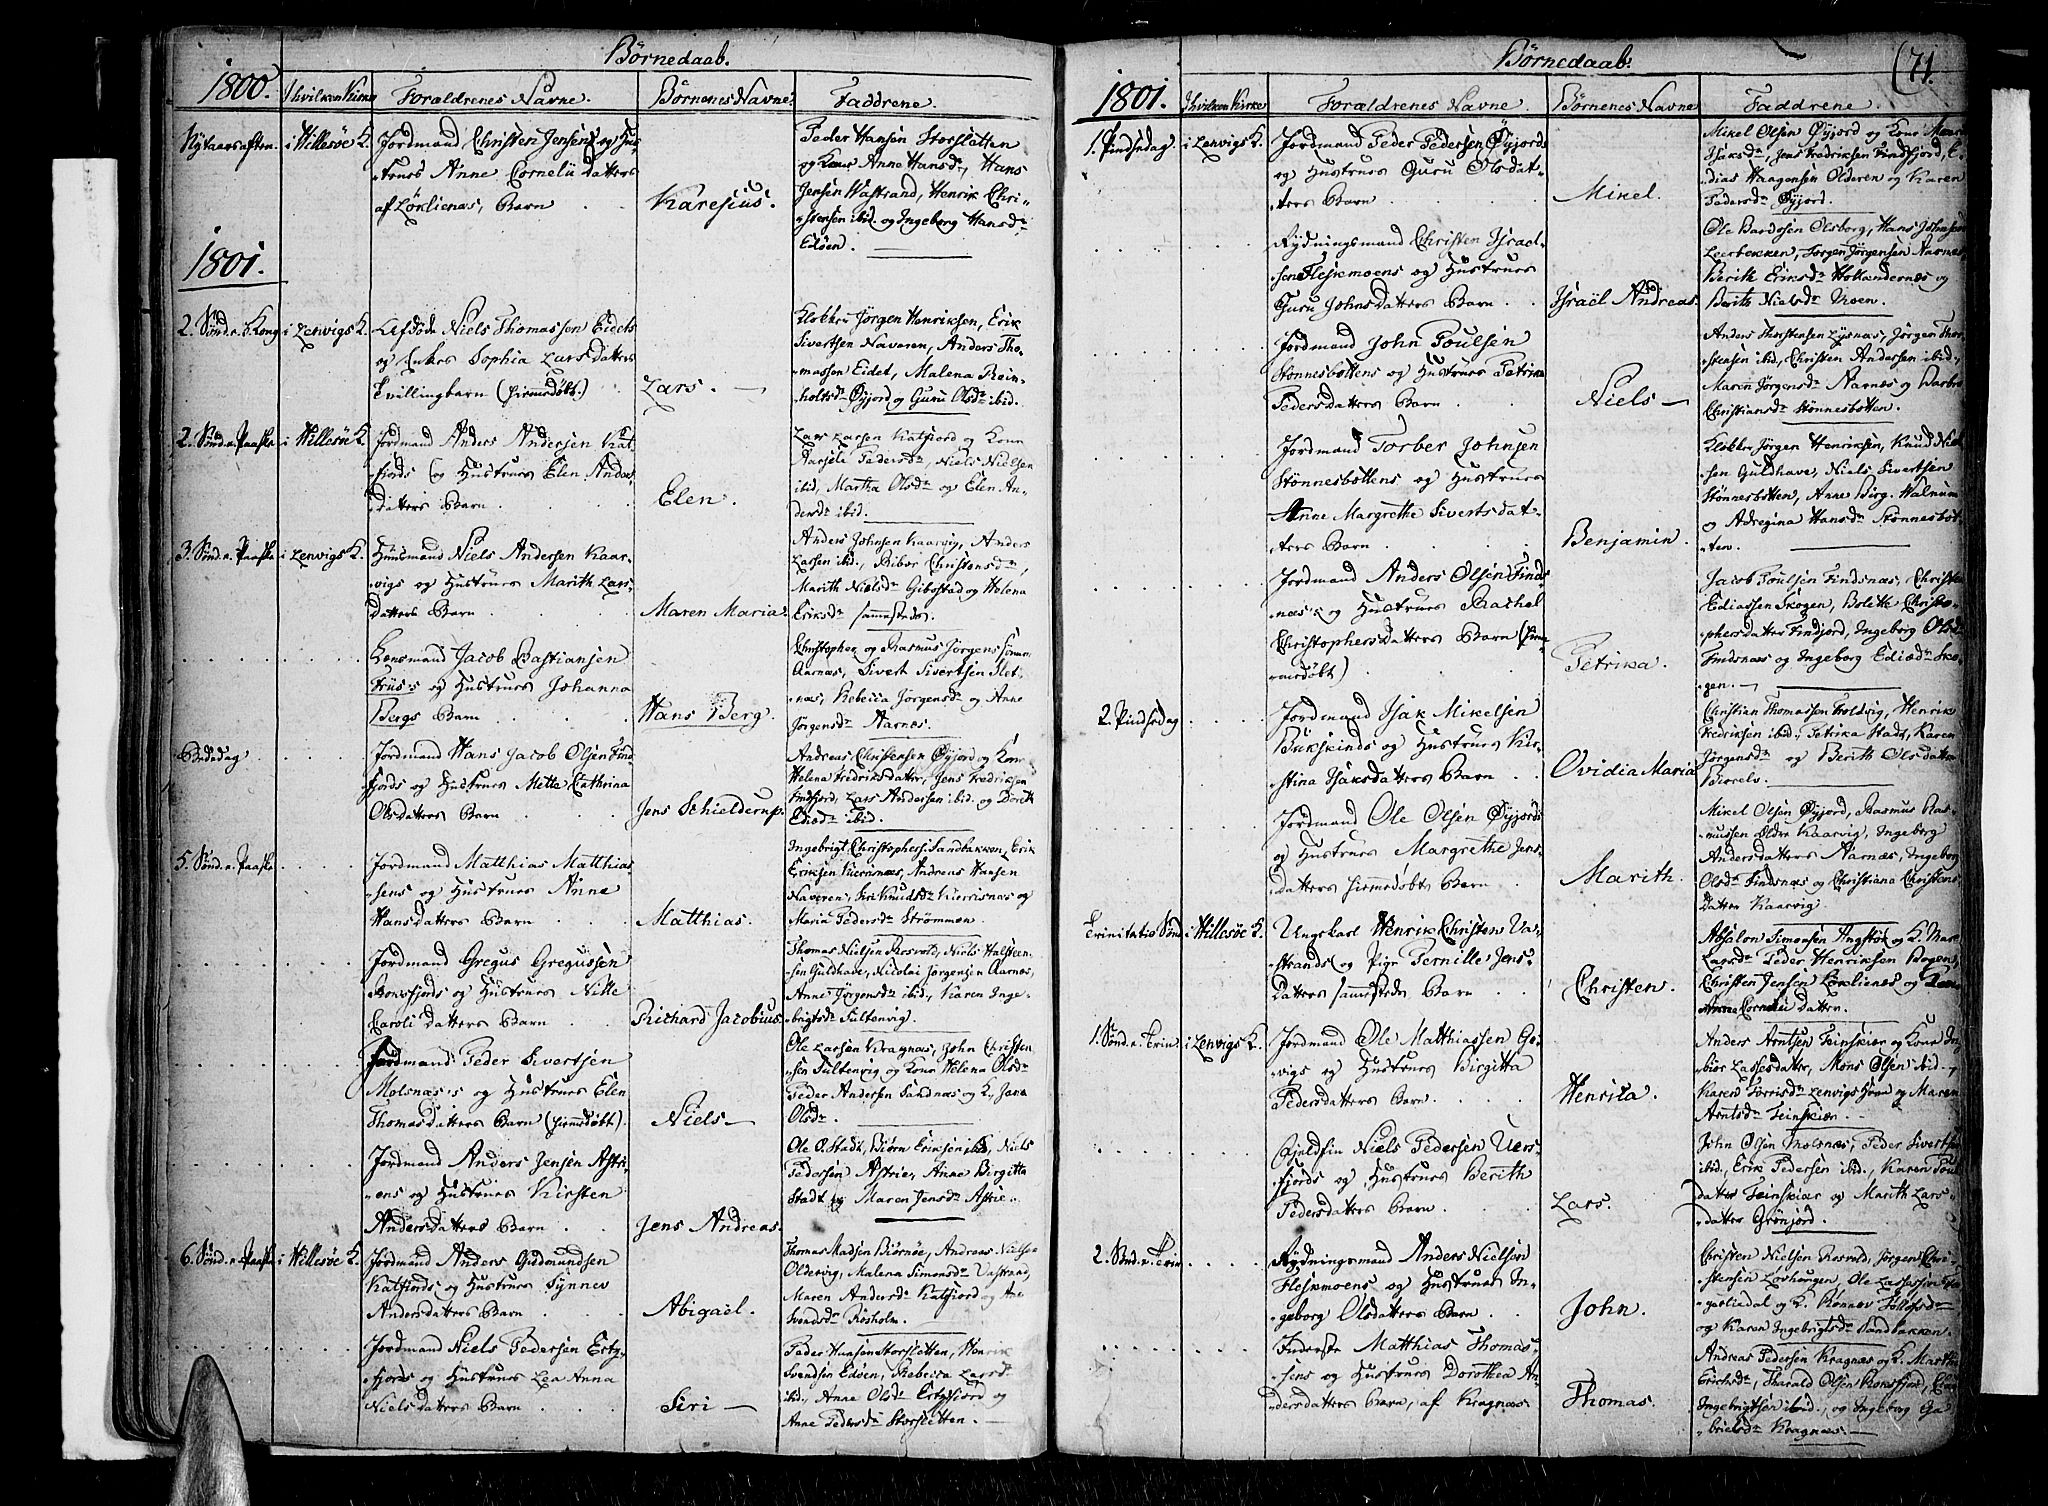 Børnedaab.
1800. I hvilken Kirke Forældrenes Navne. Børnenes Navne. Faddrene.
Nytaarsaften. i Hillesøe K. Jordmand Christen Jensens og Hu-
strues Anne Cornelii Datters
af Løklienæs, Barn
Karesius.
Peder Hansen Storsletten
og Kone Anne Hansdr, Hans
Jensen Wastrand, Henrik Chri-
stensen ibid. og Ingeborg Hansdr
Edøen.
1801.
2. Sønd. e. h. 3 Kong. i Lenvigs K. Afdøde Niels Thomassen Eidets
og Enkes Sophia Larsdatters
Tvillingbarn (hiemmedøbt.)
Lars.
Klokker Jørgen Henriksen, Erik
Sivertsen Naveren, Anders Tho-
massen Eidet, Malena Rein-
holtsdr Øyjord og Guru Olsdr ibid.
2. Sønd. e. Paaske i Hillesøe K. Jordmand Anders Andersen Kat-
fjords og Hustrues Elen Anders
datters Barn
Elen.
Lars Larsen Katfjord og Kone
Marsele Pedersdr, Niels Nielsen
ibid, Martha Olsdr og Elen An-
dersdr ibid.
3. Sønd. e. Paaske i Lenvigs K. Huusmand Niels Andersen Kaar-
vigs og Hustrues Marith Lars-
datters Barn
Maren Maria.
Anders Johnsen Kaarvig, Anders
Larsen ibid., Bibor Christensdr,
Marith Nielsdr Gibostad og Helena
Eriksdr sammesteds.
Lensmand Jacob Bastiansen
Friis's og Hustrues Johanna
Bergs Barn
Hans Berg.
Christopher og Rasmus Jørgens Sønner
Aarnæs, Sivert Sivertsen Slet-
næs, Rebecca Jørgensdr og Anne
Jørgensdr Aarnæs.
Bededag Jordmand Hans Jacob Olsen Find-
fjords og Hustrues Mette Cathrina
Olsdatters Barn
Jens Schielderup.
Andreas Christensen Øyjord og Kone
Helena Fredriksdatter, Jens Fredriksen
Findfjord, Lars Andersen ibid. og Dorith
Ediædr ibid.
5. Sønd. e. Paaske Jordmand Matthias Matthias
sens og Hustrues Anne
Hansdatters Barn
Matthias.
Ingebrigt Christophers. Sandbakken, Erik
Eriksen Kierrisnæs, Andreas Hansen
Naveren, Siri Knudsdr Kierrisnæs og
Maria Pedersdr Strømmen.
Jordmand Gregus Gregussen
Rossfjords og Hustrues Nille
Caroli Datters Barn
Richard Jacobius.
Thomas Nielsen Rosvold, Niels Halsteen-
sen Guldhave, Nicolai Jørgensen Aarnæs,
Anne Jørgensdr ibid., Karen Inge-
brigtsdr Sultenvig.
Jordmand Peder Sivertsen
Molsnæs's og Hustrues Elen
Thomasdatters Barn (hiemmedøbt).
Niels
Ole Larsen Kragnæs, John Christen
sen Sultenvig og Kone Helena Olsdr
Peder Andersen Sandnæs og K. Jana
Olsdr
Jordmand Anders Jensen Astri-
ens og Hustrues Kirsten
Andersdatters Barn
Jens Andreas.
Ole O. Stadt, Biørn Eriksen ibid, Niels
Pedersen Astrie, Anne Birgitta
Stadt og Maren Jensdr Astrie
6. Sønd. e. Paaske i Hillesøe K. Jordmand Anders Gudmundsen
Katfjords og Hustrues Synnev
Andersdatters Barn
Abigaël.
Thomas Madsen Biørnøe, Andreas Nielsen
Oldervig, Malena Simonsdr Vastrand,
Maren Andersdr Katfjord og Ane
Svendsdr Røsholm.
Jordmand Niels Pedersen Ersy-
fjords og Hustrues Lea Anna
Nielsdatters Barn
Siri
Peder Hansen Storsletten, Henrik
Svendsen Edøen, Rebecca Larsdr
ibid., Anne Olsdr Ersyfjord og
Anne Pedersdr Storsletten.
Børnedaab. (71.
1801. I hvilken Kirke Forældrenes Navne. Børnenes Navne Faddrene.
1. Pindsedag i Lenvigs K. Jordmand Peder Pedersen Øyjords
og Hustrues Guru Olsdat-
ters Barn
Mikel.
Mikel Olsen Øyjord og Kone
Isaksdr, Jens Fredriksen Findfjord, E-
dias Haagensen Olderen og Karen
Pedersdr Øyjord.
Rydningsmand Christen Israel-
sen Fleskmoens og Hustrues
Guru Johnsdatters Barn
Israël Andreas.
Ole Bardosen Olsborg, Hans Johnsen
Leerbekken, Jørgen Jørgensen Aarnæs
Berith Eriksdr Hollandernæs og
Berith Nielsdr Moen.
Jordmand John Poulsen
Stønnesbottens og Hustrues Petrika
Pedersdatters Barn
Niels
Anders Thorstensen Lysnæs, Jørgen Thor-
stensen ibid, Christen Andersen ibid,
Maren Jørgensdr Aarnæs og Barbro
Christiansdr Stønnesbotten.
Jordmand Torber Johnsen
Stønnesbottens og Hustrues
Anne Margrethe Sivertsdat-
ters Barn
Benjamin.
Klokker Jørgen Henriksen, Knud Niel-
sen Guldhave, Niels Sivertsen
Stønnesbotten, Anne Birg. Walnum
og Adregina Hansdr Stønnesbot-
ten.
Jordmand Anders Olsen Finds
næs og Hustrues Rachel
Christophersdatters Barn (hiem-
medøbt)
Petrika.
Jacob Poulsen Findsnæs, Christen
Ediassen Skogen, Bolette Christo-
phersdatter Findjord, Ingeborg Olsdr
Findsnæs og Ingeborg Ediædr Sko-
gen.
2. Pindsedag Jordmand Isak Mikelsen
Bukskinds og Hustrues Kir-
stina Isaksdatters Barn
Ovidia Maria
Christian Thomassen Troldvig, Henrik
Fredriksen ibid., Petrika Stadt, Karen
Jørgensdr og Berith Olsdatter
Jordmand Ole Olsen Øyjords
og Hustrues Margrethe Jens-
datters hiemmedøbt Barn
Marith.
Mikel Olsen Øyjord, Rasmus Ras-
mussen Ældre Kaarvig, Ingeborg
Andersdatter Aarnæs, Ingeborg
Olsdr Findsnæs og Christiana Christens
datter Kaarvig.
Trinitatis Sønd. i Hillesøe K. Ungkarl Henrik Christens Va-
strands og Pige Pernille Jens
Datters sammesteds Barn
Christen.
Absalon Simonsen Angstok og K. Mar.
Larsdr Peder Henriksen Bogen,
Christen Jensen Løklienæs og
Anne Cornelii Datter.
1. Sønd. e. Trin. i Lenvigs K. Jordmand Ole Matthiassen Ge-
vigs og Hustrues Birgitta
Pedersdatters Barn.
Henrika.
Anders Arntsen Finskiær og Kone In-
bior Lassedatter, Mons Olsen ibid.
Karen Torrisdr Lenvigs og Maren
Arntsdr Finskiær.
Fieldfin Niels Pedersen Uers-
fjords og Hustrues Berith
Pedersdatters Barn
Lars.
John Olsen Molsnæs, Peder Sivertsen
ibid, Erik Pedersen ibid., Karen Poul
datter Finskiær og Marith Lars-
datter Grønjord.
2. Sønd. e. Trin Rydningsmand Anders Nielsen
Fleskmoens og Hustrues In-
geborg Olsdatters Barn
John.
Christen Nielsen Rosvold, Jørgen Chri-
stensen Lovhougen, Ole Lassessen
og K. Rønnev
og Karen Ingebrigtsdr Sandbakken.
Inderste Matthias Thomas-
sens og Hustrues Dorothea An-
dersdatters Barn, af Kragnæs
Thomas.
Andreas Pedersen Kragnæs og K. Martha
Erichsdr, Tharald Olsen Rossfjord,
Ingebrigtsen ibid., og Ingeborg Ga
brielsdr Kragnæs.